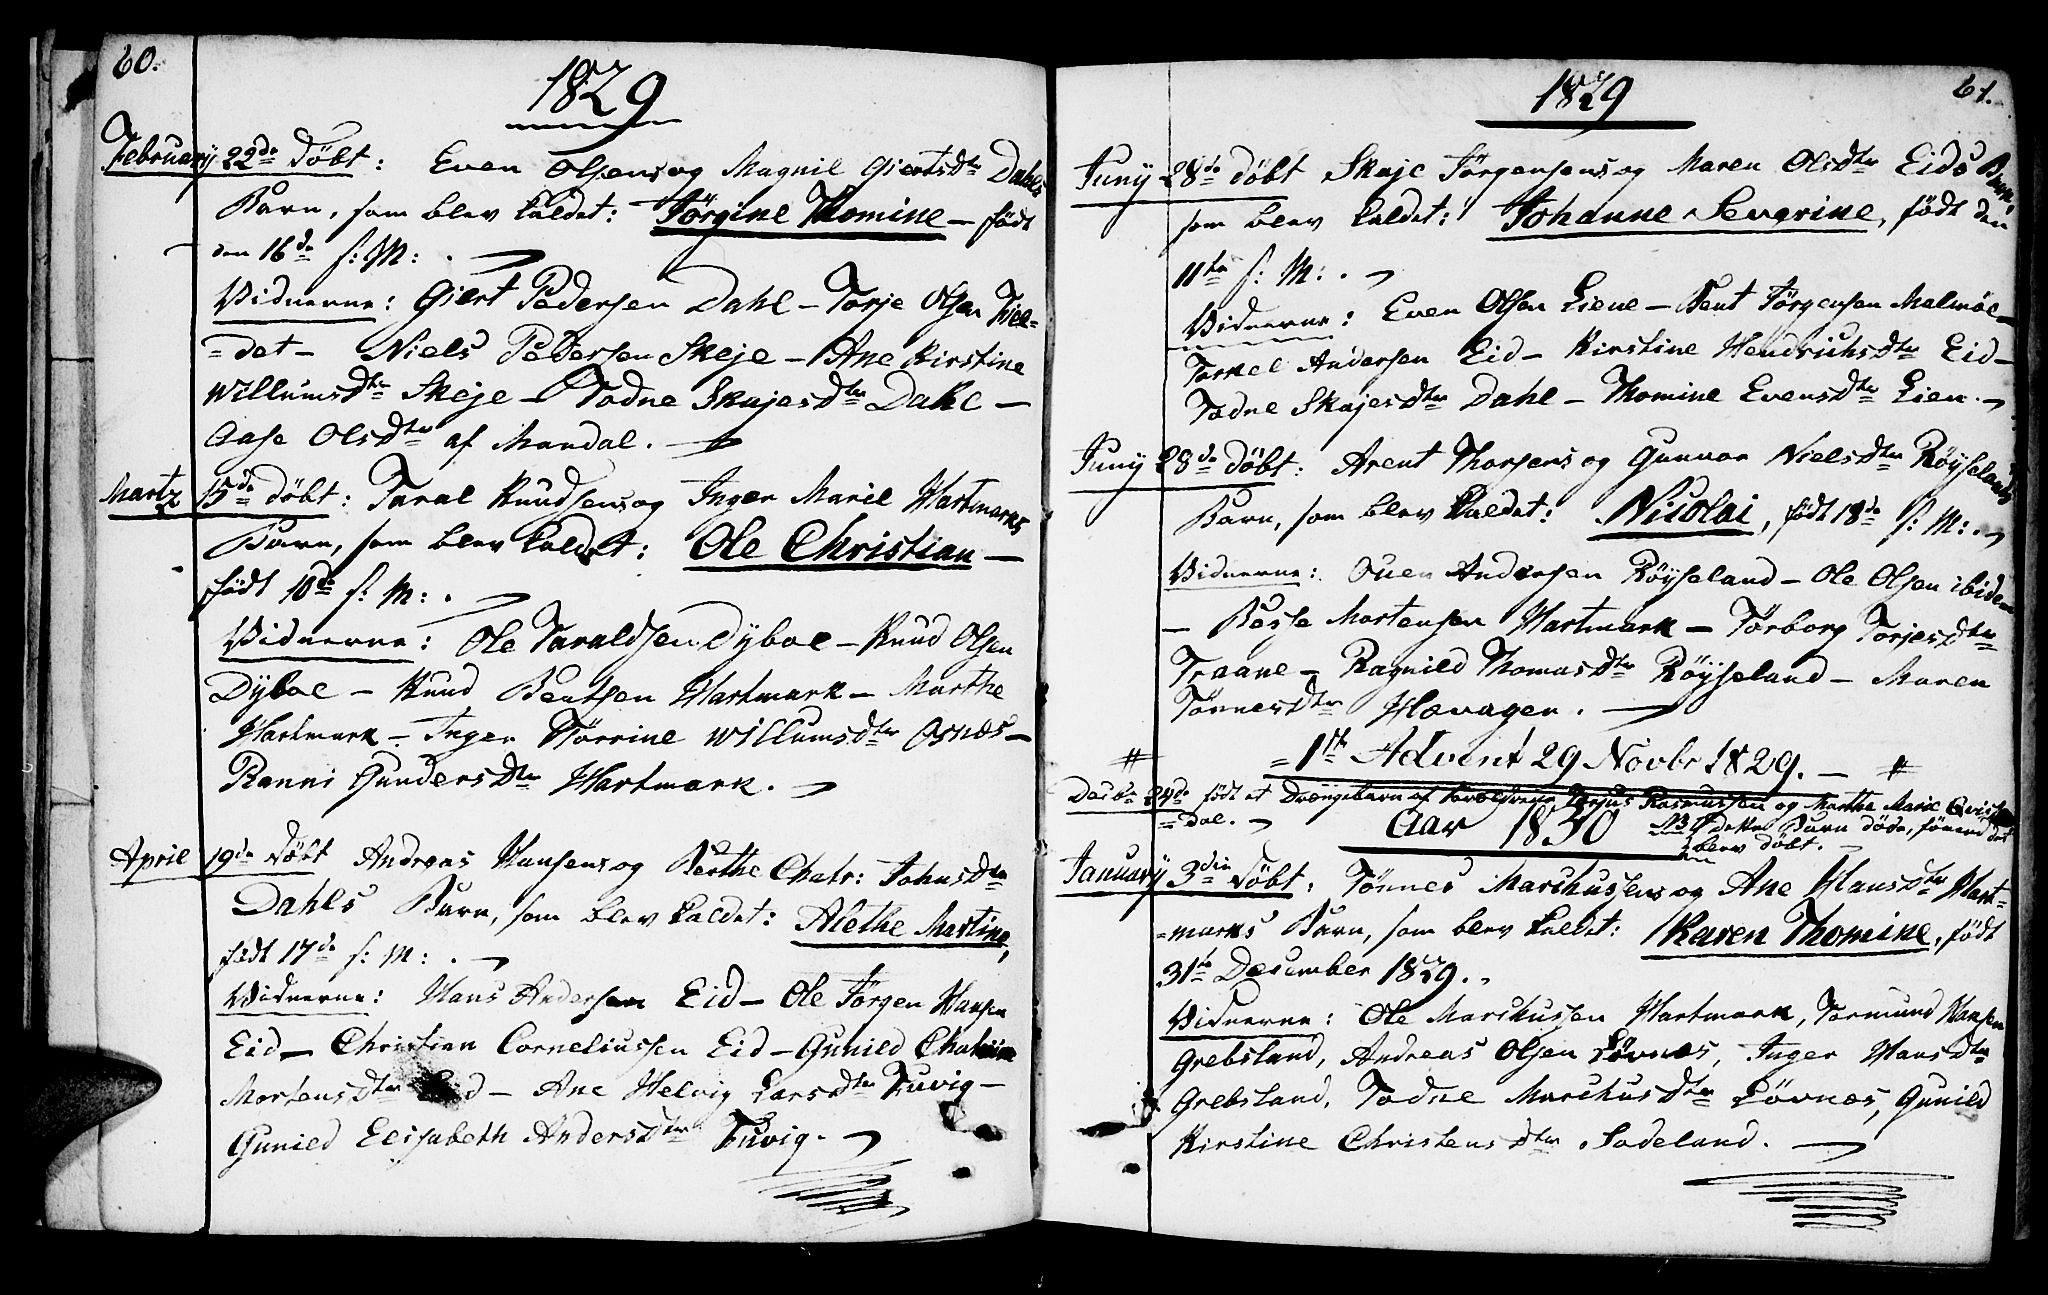 60.
1829
February 22de döbt: Even Olsens og Magnil Giertsdtr Dahls
Barn, som blev kaldet: Jörgine Thomine — födt
den 16de s: M: .
Vidnerne: Giert Pedersen Dahl — Torje Olsen Tvee-
=det — Niels Pedersen Skeje — Ane Kirstine
Willumsdtr Skeje — Todne Skajesdtr Dahl —
Aase Olsdtr af Mandal. —
Martz 15de döbt: Taral Knudsens og Inger Marie Hartmarks
Barn, som blev kaldet: Ole Christian —
födt 10de s: M: .
Vidnerne: Ole Taraldsen Dyboe — Knud Olsen
Dyboe — Knud Bentsen Hartmark — Marthe
Hartmark — Inger Törrine Willumsdtr Osnes —
Ranni Gundersdtr Hartmark.
April 19de döbt Andreas Hansens og Berthe Chatr: Johnsdtr
Dahls Barn, som blev kaldet: Alethe Martine,
födt 17de s: M: .
Vidnerne: Hans Andersen Eid — Ole Jörgen Hansen
Eid — Christian Corneliussen Eid — Gunild Chatrine
Mortensdtr — Ane Helvig Larsdtr Tuvig —
Gunild Elisabeth Andersdtr Tuvig.
61.
1829
Juny 28de döbt Skaje Jörgensens og Maren Olsdtr Eids Barn,
som blev kaldet: Johanne Severine, födt den
11te s: M: .
Vidnerne: Even Olsen Liene — Bent Jörgensen Malmöe —
Torkel Andersen Eid — Kirstine Hendrichsdtr Eid —
Todne Skajesdtr Dahl — Thomine Evensdtr Lien.
Juny 28de döbt: Arent Thorsens og Gunnor Nielsdtr Röyselands
Barn, som blev kaldet: Nicolai, födt 18de s: M: .
Vidnerne: Ouen Andersen Röyseland — Ole Olsen ibidem
— Besse Mortensen Hartmark — Torborg Torjesdtr
Traane — Ragnild Thomasdtr Röyseland — Maren
Tönnesdtr Hævagen. —
# =1ste Advent 29 Novbr 1829. — #
Decbr 24de födt et Drængebarn af Forældrene Terjus Rasmussen og Marthe Marie Qvis
=dal. —
Aar 1830
NB dette Barn döde, förend det
blev döbt.
January 3die döbt: Tönnes Marchussens og Ane Hansdtr Hart-
=marks Barn, som blev kaldet: Karen Thomine, födt
31te December 1829.
Vidnerne: Ole Marchussen Hartmark, Tormund Hansen
Grebsland, Andreas Olsen Lövnes, Inger Hansdtr
Grebsland, Todne Marchusdtr Lövnes, Gunild
Kirstine Christensdtr Sodeland. —